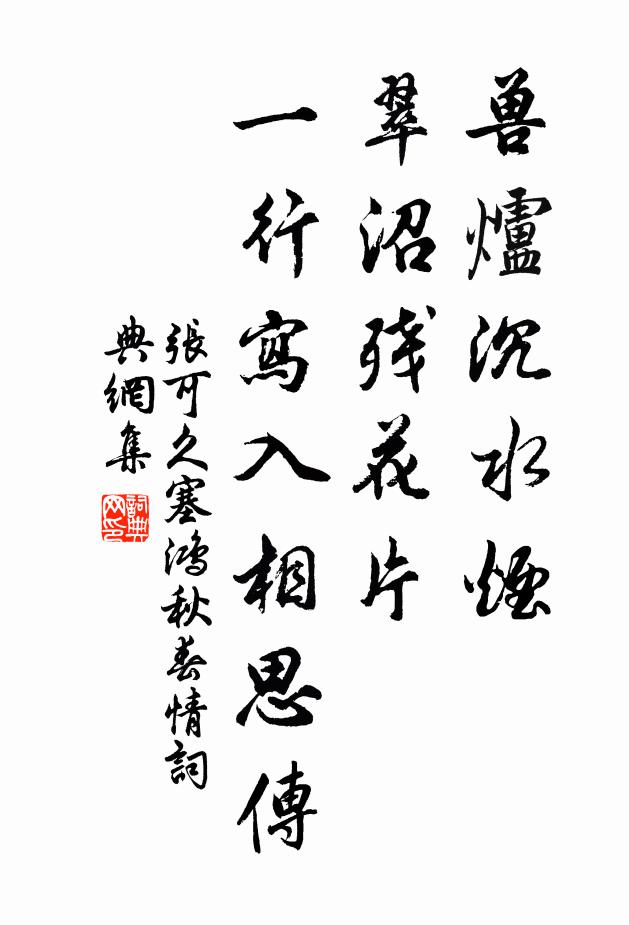 兽爐沉水煙
翠沼残花片
一行寫入相思傳
張可久塞鴻秋春情詞
典網集
詞典网印